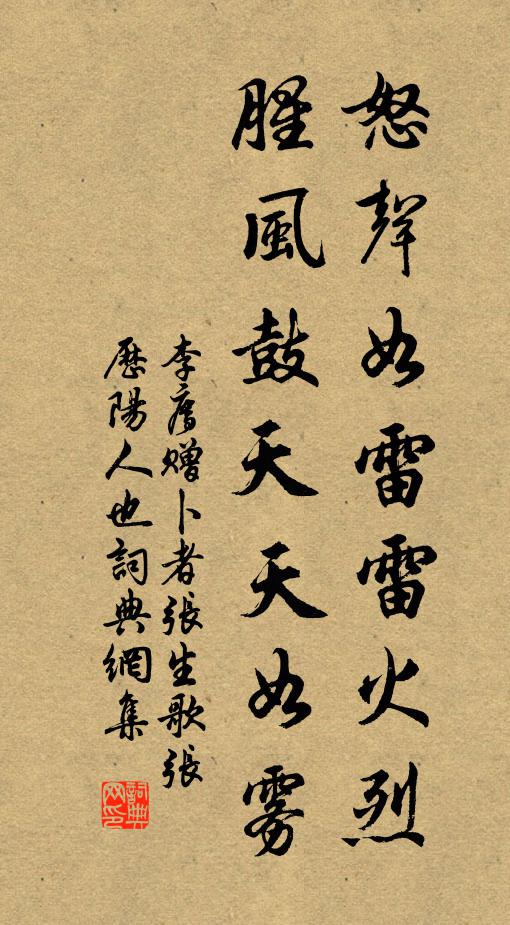 怒聲如雷雷火烈
腥風鼓天天如霧
李廌赠卜者張生歌張
歷陽人也詞典網集
詞典
网印